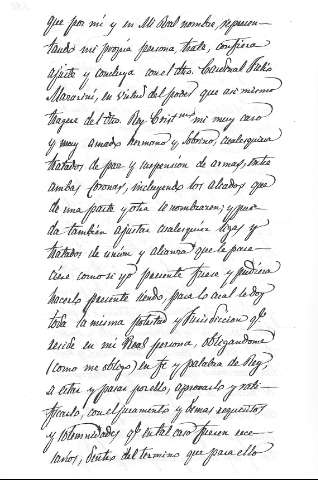 que por mi y en Mi Real nombre, represen-
tando mi propia persona, trate, confiera
ajuste y concluya con el dho. Cardenal Julio
Mazarini, en virtud del poder que asi mismo
tragere del dho. Rey Crist.mo mi muy caro
y muy amado hermano y sobrino, cualesquiera
tratados de paz y suspension de armas, entre
ambas coronas, incluyendo los aliados que
de una parte y otra se nombraren; y pue-
da tambien ajustar cualesquier ligas y
tratados de union y alianza que le pare-
ciere como si yo presente fuera y pudiera
hacerlo presente siendo, para lo cual le doy
toda la misma potestad y jurisdiccion q.e
reside en mi Real persona, obligandome
(como me obligo) en fe y palabra de Rey,
a estar y pasar por ello, aprovarlo y rati-
ficarlo, con el juramento y demas requisitos
y solemnidades q.e en tal caso fueren nece-
sarios, dentro del termino que para ello